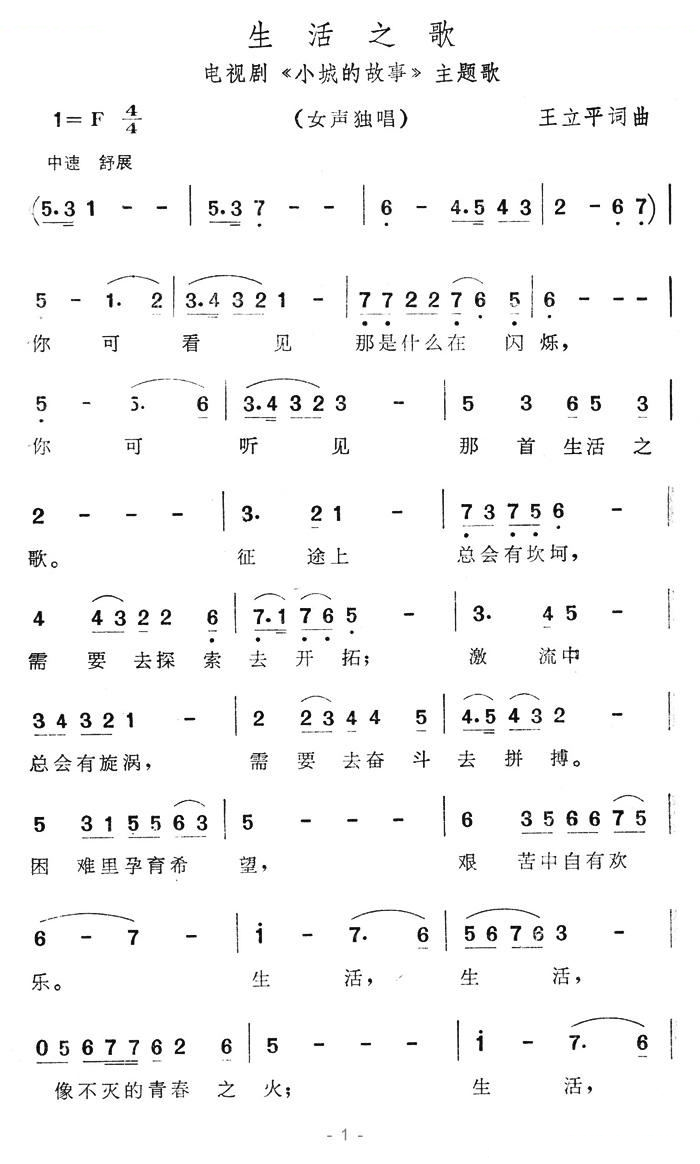 生活之歌
电视剧《小城的故事》主题歌
1=F 4/4 （女声独唱） 王立平词曲
中速 舒展
(5.3 1 - - | 5.3 7 - - | 6 - 4.5 4 3 | 2 - 6 7) |
5 - 1. 2 | 3.4 3 2 1 - | 7 7 2 2 7 6 5 | 6 - - - |
你 可 看 见 那是什么在 闪 烁，
5 - 5. 6 | 3.4 3 2 3 - | 5 3 6 5 3 |
你 可 听 见 那 首 生活 之
2 - - - | 3. 2 1 - | 7 3 7 5 6 - |
歌。 征 途上 总会有坎坷，
4 4 3 2 2 6 | 7.1 7 6 5 - | 3. 4 5 - |
需 要 去探 索 去 开 拓； 激 流中
3 4 3 2 1 - | 2 2 3 4 4 5 | 4.5 4 3 2 - |
总会有旋涡， 需 要 去奋 斗 去 拼 搏。
5 3 1 5 5 6 3 | 5 - - - | 6 3 5 6 6 7 5 |
困 难里孕育希 望， 艰 苦中自有欢
6 - 7 - | i - 7. 6 | 5 6 7 6 3 - |
乐。 生 活， 生 活，
0 5 6 7 7 6 2 6 | 5 - - - | i - 7. 6 |
像不灭的青春 之 火； 生 活，
- 1 -